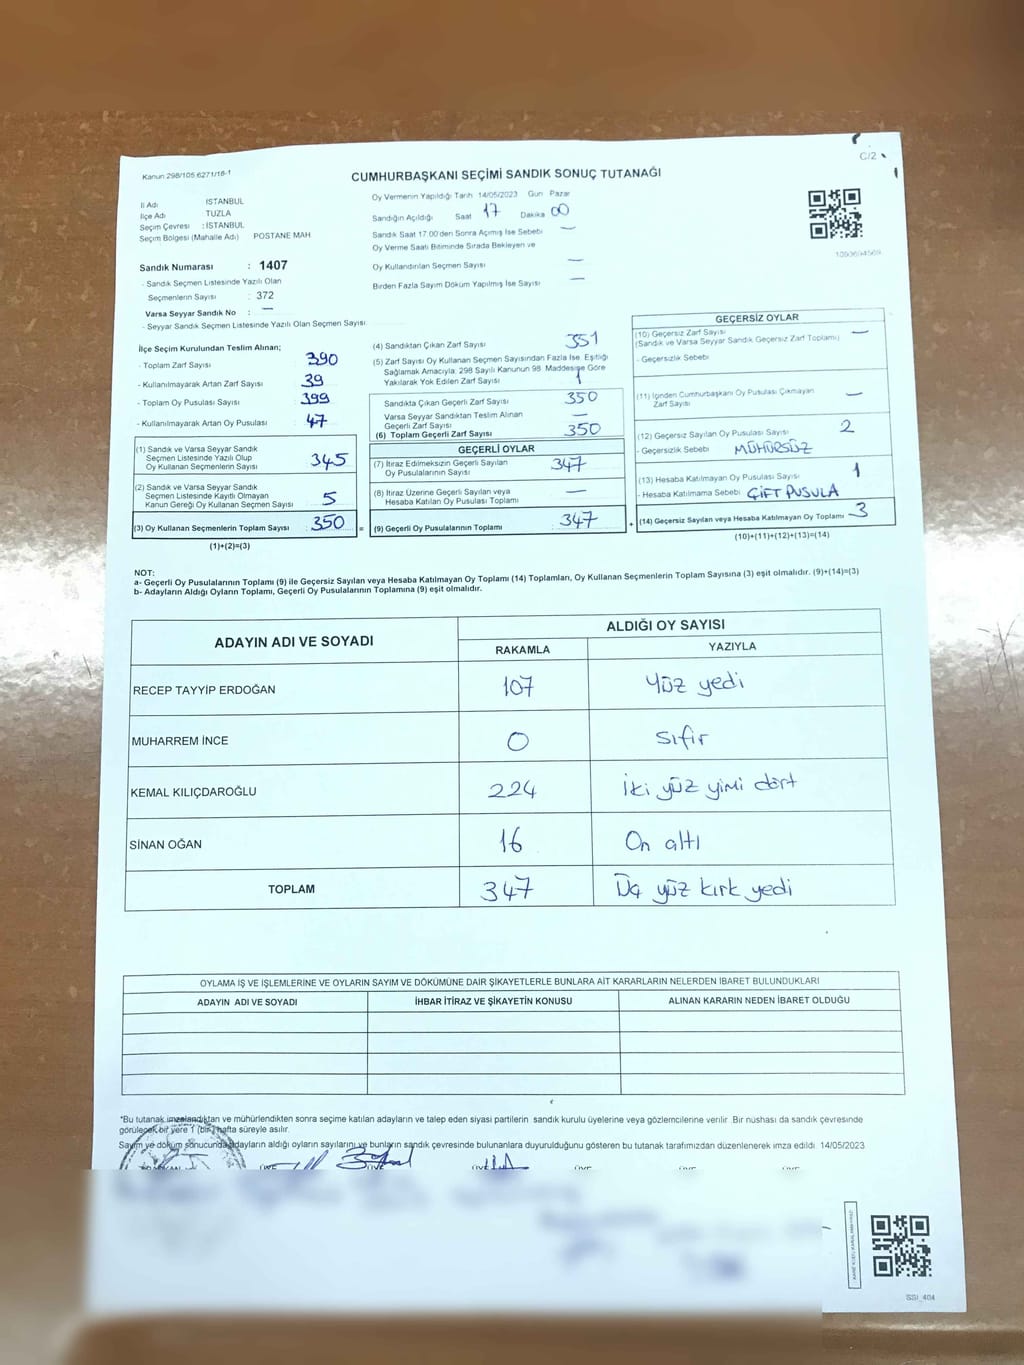 Kanun 298/105 6271/16-1
C/2
CUMHURBAŞKANI SEÇİMİ SANDIK SONUÇ TUTANAĞI
İl Adı İSTANBUL
İlçe Adı TUZLA
Seçim Çevresi : İSTANBUL
Seçim Bölgesi (Mahalle Adı) POSTANE MAH
Oy Vermenin Yapıldığı Tarih 14/05/2023 Gün Pazar
Sandığın Açıldığı Saat 17 Dakika 00
Sandık Saat 17.00'den Sonra Açımış İse Sebebi —
Oy Verme Saati Bitiminde Sırada Bekleyen ve
Oy Kullandırılan Seçmen Sayısı —
Birden Fazla Sayım Döküm Yapılmış İse Sayısı —
Sandık Numarası : 1407
- Sandık Seçmen Listesinde Yazılı Olan
Seçmenlerin Sayısı : 372
Varsa Seyyar Sandık No : —
- Seyyar Sandık Seçmen Listesinde Yazılı Olan Seçmen Sayısı
İlçe Seçim Kurulundan Teslim Alınan;
- Toplam Zarf Sayısı : 390
- Kullanılmayarak Artan Zarf Sayısı : 39
- Toplam Oy Pusulası Sayısı : 399
- Kullanılmayarak Artan Oy Pusulası : 47
(1) Sandık ve Varsa Seyyar Sandık
Seçmen Listesinde Yazılı Olup
Oy Kullanan Seçmenlerin Sayısı 345
(2) Sandık ve Varsa Seyyar Sandık
Seçmen Listesinde Kayıtlı Olmayan
Kanun Gereği Oy Kullanan Seçmen Sayısı 5
(3) Oy Kullanan Seçmenlerin Toplam Sayısı 350 =
(1)+(2)=(3)
(4) Sandıktan Çıkan Zarf Sayısı 351
(5) Zarf Sayısı Oy Kullanan Seçmen Sayısından Fazla İse, Eşitliği
Sağlamak Amacıyla; 298 Sayılı Kanunun 98. Maddesine Göre
Yakılarak Yok Edilen Zarf Sayısı 1
Sandıkta Çıkan Geçerli Zarf Sayısı 350
Varsa Seyyar Sandıktan Teslim Alınan
Geçerli Zarf Sayısı —
(6) Toplam Geçerli Zarf Sayısı 350
GEÇERLİ OYLAR
(7) İtiraz Edilmeksizin Geçerli Sayılan
Oy Pusulalarının Sayısı 347
(8) İtiraz Üzerine Geçerli Sayılan veya
Hesaba Katılan Oy Pusulası Toplamı —
(9) Geçerli Oy Pusulalarının Toplamı 347 +
GEÇERSİZ OYLAR
(10) Geçersiz Zarf Sayısı —
(Sandık ve Varsa Seyyar Sandık Geçersiz Zarf Toplamı)
- Geçersizlik Sebebi
(11) İçinden Cumhurbaşkanı Oy Pusulası Çıkmayan
Zarf Sayısı —
(12) Geçersiz Sayılan Oy Pusulası Sayısı 2
- Geçersizlik Sebebi MÜHÜRSÜZ
(13) Hesaba Katılmayan Oy Pusulası Sayısı 1
- Hesaba Katılmama Sebebi ÇİFT PUSULA
(14) Geçersiz Sayılan veya Hesaba Katılmayan Oy Toplamı 3
(10)+(11)+(12)+(13)=(14)
NOT:
a- Geçerli Oy Pusulalarının Toplamı (9) ile Geçersiz Sayılan veya Hesaba Katılmayan Oy Toplamı (14) Toplamları, Oy Kullanan Seçmenlerin Toplam Sayısına (3) eşit olmalıdır. (9)+(14)=(3)
b- Adayların Aldığı Oyların Toplamı, Geçerli Oy Pusulalarının Toplamına (9) eşit olmalıdır.
ADAYIN ADI VE SOYADI ALDIĞI OY SAYISI
RAKAMLA YAZIYLA
RECEP TAYYİP ERDOĞAN 107 Yüz yedi
MUHARREM İNCE 0 Sıfır
KEMAL KILIÇDAROĞLU 224 İki yüz yimi dört
SİNAN OĞAN 16 On altı
TOPLAM 347 Üç yüz kırk yedi
OYLAMA İŞ VE İŞLEMLERİNE VE OYLARIN SAYIM VE DÖKÜMÜNE DAİR ŞİKAYETLERLE BUNLARA AİT KARARLARIN NELERDEN İBARET BULUNDUKLARI
ADAYIN ADI VE SOYADI İHBAR İTİRAZ VE ŞİKAYETİN KONUSU ALINAN KARARIN NEDEN İBARET OLDUĞU
*Bu tutanak imzalandıktan ve mühürlendikten sonra seçime katılan adayların ve talep eden siyasi partilerin sandık kurulu üyelerine veya gözlemcilerine verilir. Bir nüshası da sandık çevresinde
görülecek bir yere 1 (bir) hafta süreyle asılır.
Sayım ve döküm sonucunda adayların aldığı oyların sayılarını ve bunların sandık çevresinde bulunanlara duyurulduğunu gösteren bu tutanak tarafımızdan düzenlenerek imza edildi 14/05/2023
SSI_404